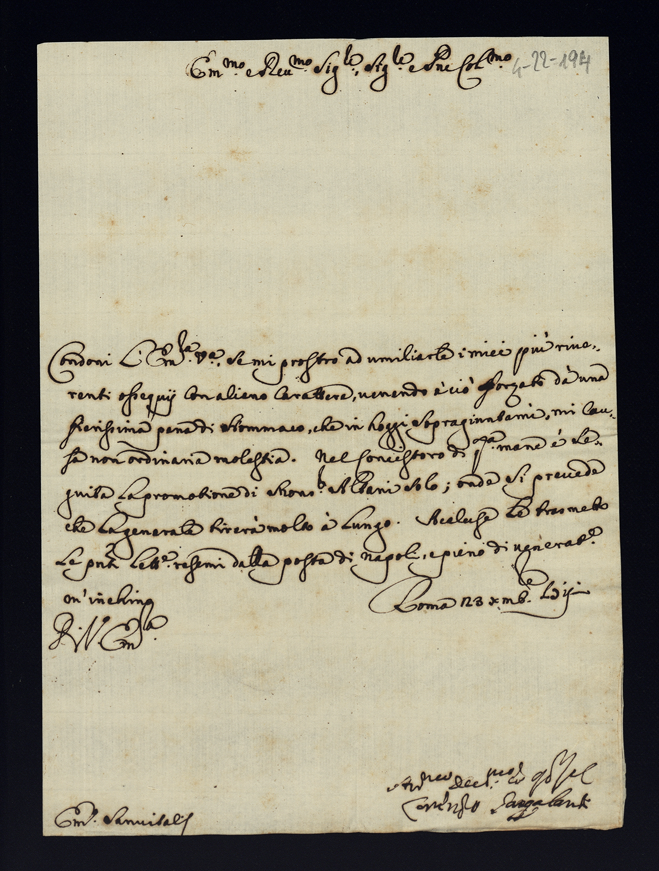 Em.mo e Reu.mo Sig.re, Sig.re e Pne Col.mo
4-22-194
Condoni L'Em.za V.a, se mi prostro ad umiliarle i miei più riue-
renti ossequij con alieno Carattere, uenendo à ciò forzato dà una
fierissima pena di stommaco, che in hoggi sopragiuntami, mi cau-
sa non ordinaria molestia. Nel Concistoro di q.ta mane è se-
guita la promotione di Mons.r Albani solo; onde si preuede
che la generale tirerà molto à lungo. Acaluse le trasmetto
le pnti lett.e resemi dalla posta di Napoli, e pieno di uenerat.e
m'inchino
D. V. Em.za
Roma 23 xmb.e
Em.o Sanuitali
Lorenzo